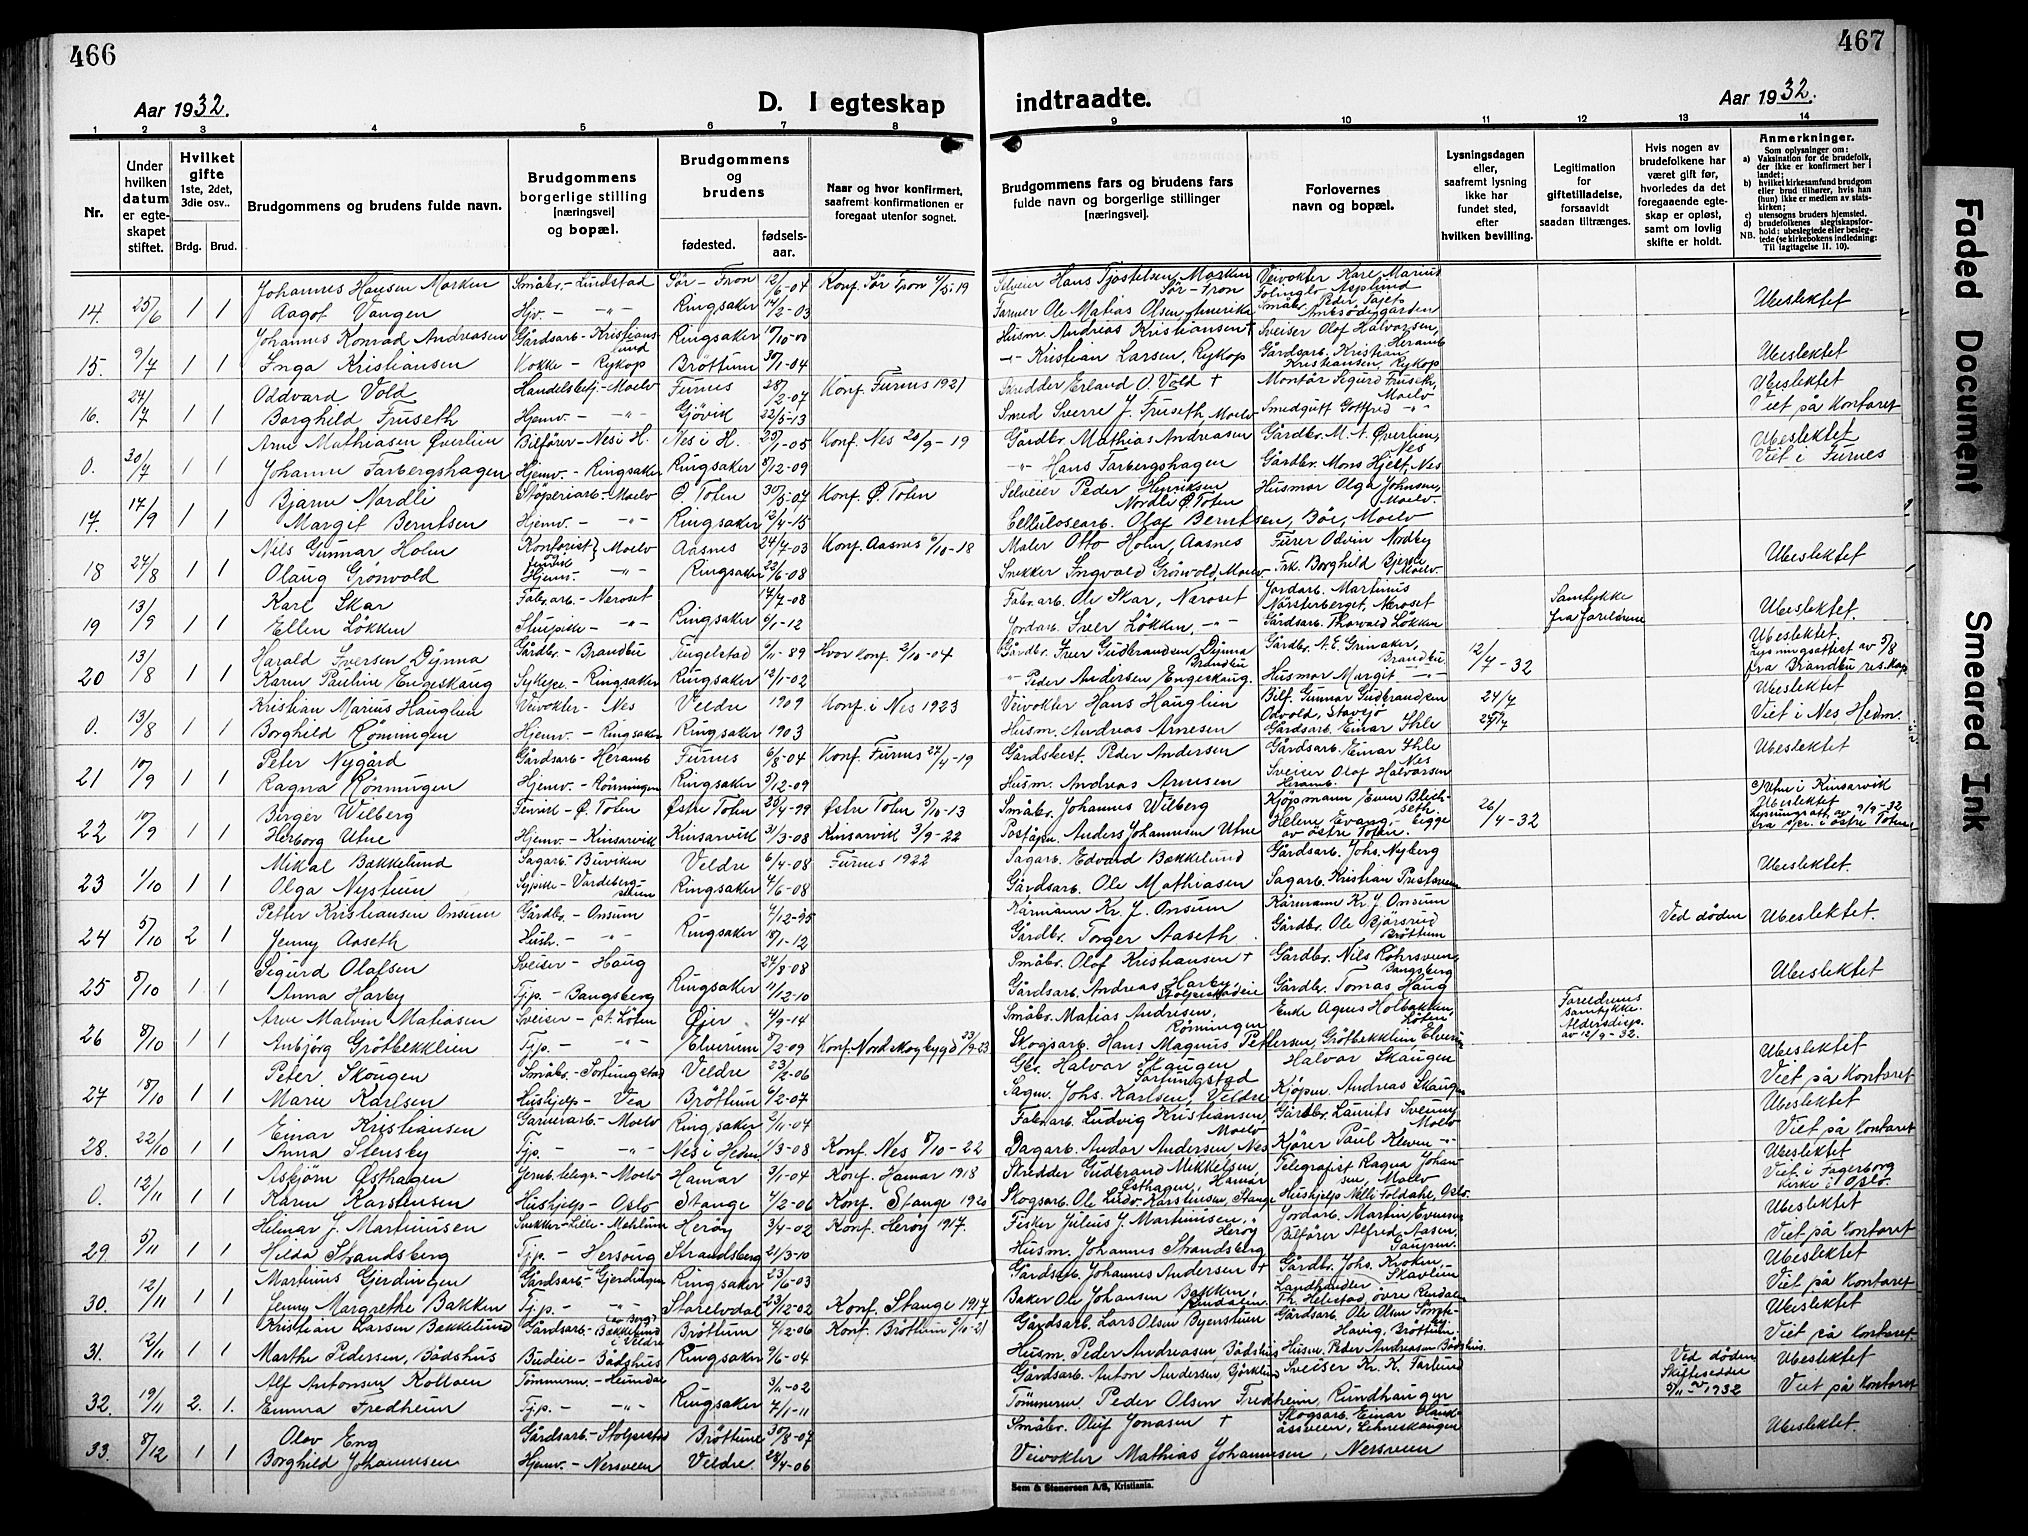 466
Aar 1932.
D. I egteskap
1 2 3 4 5 6 7 8
Nr.
Under hvilken datum er egteskapet stiftet.
Hvilket gifte 1ste, 2det, 3die osv..
Brdg. Brud.
Brudgommens og brudens fulde navn.
Brudgommens borgerlige stilling [næringsvei] og bopæl.
Brudgommens og brudens
fødested.
fødselsaar.
Naar og hvor konfirmert, saafremt konfirmationen er foregaat utenfor sognet.
14. 25/6 1 1 Johannes Hansen Morken Småbr. - Lundstad Sør-Fron 12/6-04 Konf. Sør Fron 4/5-19
Dagot Vangen Hjv. - " - Ringsaker 14/2-03
15. 9/7 1 1 Johannes Konrad Andreasen Gårdsarb.-Kristianslund Ringsaker 17/10-00
Inga Kristiansen Kokke - Rykop Brøttum 30/1-04
16. 24/7 1 1 Oddvard Vold Handelsbetj.-Moelv Furnes 28/2-07 Konf. Furnes 1921
Borghild Fruseth Hjemv. - " - Gjøvik 22/5-13
0. 30/7 1 1 Arne Mathiasen Øverlien Bilfører-Nes i H. Nes i H. 25/1-05 Konf. Nes 20/9-19
Johanne Farbergshagen Hjemv.-Ringsaker Ringsaker 8/12-09
17. 17/9 1 1 Bjarne Nordli Støperiarb.-Moelv Ø. Toten 30/5-07 Konf. Ø. Toten
Margit Berntsen Hjemv. - " - Ringsaker 12/4-15
18 24/8 1 1 Nils Gunnar Holm Kontorist Moelv Aasnes 24/7-03 Konf. Aasnes 6/10-18
Olaug Grönvold Hjemv. " Ringsaker 22/6-08
19 13/9 1 1 Karl Skar Fabr.arb - Næroset 14/7-08
Ellen Løkken - " - Ringsaker 6/1-12
20 13/8 1 1 Harald Iversen Dynna Gårdbr. - Brandbu Tingelstad 6/11-89 Hvor konf. 2/10-04
Karen Pauline Engeskaug Sykepl.-Ringsaker Ringsaker 12/1-02
0. 13/8 1 1 Kristian Marius Hauglien Veivokter-Nes Veldre 1909 Konf. i Nes 1923
Borghild Rönningen Hjemv.-Ringsaker Ringsaker 1903
21 10/9 1 1 Peter Nygård Gårdsarb-Heramb Furnes 6/8-04 Konf. Furnes 27/4-19
Ragna Rönningen Hjemv.-Rönningen Ringsaker 5/12-09
22 10/9 1 1 Birger Wilberg Ø. Toten Østre Toten 25/4-99 Østre Toten 5/10-13
Herborg Utne Hjemv.-Kinsarvik Kinsarvik 31/3-08 Kinsarvik 3/9-22
23 1/10 1 1 Mikal Bakkelund Sagarb-Buviken Veldre 6/4-08 Furnes 1922
Olga Nystuen Ringsaker 4/6-08
24 5/10 2 1 Petter Kristiansen Onsum Gårdbr.-Onsum Ringsaker
Jenny Aaseth Hush. - " - 18/1-12
25 8/10 1 1 Sigurd Olafsen Sveiser - Haug Ringsaker 24/8-08
Anna Harby Tjp. - Bangsberg 11/12-10
26 8/10 1 1 Arve Malvin Matiasen Sveiser - st. Löten Øjer 4/9-14
Anbjörg Grötbekklien Tjp. - " - Elverum 8/2-09 Konf. Nord skogbygd 23/9-23
27 18/10 1 1 Peter Skougen Småbr. Veldre 23/2-06
Marie Karlsen Hushjelp - Vea Brøttum 6/2-07
28. 22/10 1 1 Einar Kristiansen Garverarb.-Moelv Ringsaker 2/11-04
Anna Stensby Tjp. " Nes i Hedm 1/3-08 Konf. Nes 8/10-22
0. 12/11 1 1 Asbjörn Østhagen Jernb.telegr.-Moelv Hamar 3/1-04 Konf. Hamar 1918
Karen Karstensen Hushjelp-Oslo Stange 4/2-06 Konf. Stange 1920
29. 5/11 1 1 Hilmar J. Martinusen Snekker-Lille-Mæhlum Herøy 3/4-02 Konf. Herøy 1917.
Hilda Strandsberg Tjp. - Hersoug Strandsberg 21/3-10
30. 12/11 1 1 Martinus Gjerdingen Gårdsarb-Gjerdingen Ringsaker 23/6-03
Jenny Margrethe Bakken Tjp. - " - Storelvdal 23/12-02 Konf. Stange 1917
31. 12/11 1 1 Kristian Larsen Bakkelund Gårdsarb.-Bakkelund i Veldre Brøttum 4/12-06 Konf. Brøttum 2/10-21
Marthe Pedersen, Bådshus Budeie-Bådshus Ringsaker 9/6-04
32. 19/11 2. 1. Alf Antonsen Tömmerm. 3/11-02
Emma Fredheim Tjp. - " - Ringsaker 7/1-11
33. 8/12 1 1 Olav Eng Gårdsarb. Brøttum 30/8-07
Borghild Johannesen Hjemv. - Nersveen Veldre. 28/4-06
467
indtraadte.
Aar 1932.
9 10 11 12 13 14
Brudgommens fars og brudens fars fulde navn og borgerlige stillinger [næringsvei].
Forlovernes navn og bopæl.
Lysningsdagen eller, saafremt lysning ikke har fundet sted, efter hvilken bevilling.
Legitimation for giftetilladelse, forsaavidt saadan tiltrænges.
Hvis nogen av brudefolkene har været gift før, hvorledes da det foregaaende egteskap er opløst, samt om lovlig skifte er holdt.
Anmerkninger.
Som oplysninger om:
a) Vaksination for de brudefolk, der ikke er konfirmert her i landet;
b) hvilket kirkesamfund brudgom eller brud tilhører, hvis han (hun) ikke er medlem av statskirken;
c) utensogns bruders hjemsted.
d) brudefolkenes slegtskapsforhold: ubeslegtede eller beslegtede (se kirkebokens indledning:
NB. Til Iagttagelse II. 10).
Selveier Hans Tjostelsen Morken Sør-Fron Veivokter Kare Marius Asplund Ubeslektet
Farmer Ole Matias Olsen, Amerika Småbr. Peder Sajets
Husm. Andreas Kristiansen † Sveiser Olaf Halvorsen, Heramb Ubeslektet
- " - Kristian Larsen, Rykop Gårdsarb. Kristian Kristiansen, Rykop
Skredder Erland O. Vold † Montør Sigurd Fruseth, Moelv Ubeslektet
Smed Sverre J. Fruseth Moelv Smedgutt Gottfred - " - Viet på Kontoret
Gårdbr. Mathias Andreasen Gårdbr. M. A. Øverlien, Nes Ubeslektet
- " - Hans Farbergshagen Gårdbr. Mons Hjelt, Nes Viet i Furnes
Selveier Peder Henriksen Nordli Ø. Toten Husmor Olga Johnsen, Moelv
Cellulosearb. Olaf Berntsen, Böe, Moelv
Maler Otto Holm, Aasnes Furer Odvin Nordby Ubeslektet
Snekker Ingvald Grönvold, Moelv. Frk. Borghild Bjerke Moelv.
Fabr.arb. Ole Skar, Næroset Jordarb. Martinus Nörsterberget, Næroset Samtykke fra foreldrene Ubeslektet.
Jordarb. Iver Løkken, - " - Gårdsarb. Thorvald Løkken
Gårdbr. Iver Gudbrandsen Dynna Brandbu Gårdbr. A. E. Grinaker, Brandbu. 12/7-32 Ubeslektet. Lysningsattest av 5/8 fra Brandbu res.kap
" Peder Andersen Engeskaug. Husmor Margit - " -
Veivokter Hans Hauglien Bilf. Gunnar Gudbrandsen Odvold, Stavsjø 24/7 Ubeslektet
Husm. Andreas Arnesen Gårdsarb. Einar Ihle Viet i Nes Hedm.
Gårdsbest. Peder Andersen Gårdsarb. Einar Ihle Nes Ubeslektet
Husm. Andreas Arnesen Sveiser Olaf Halvorsen Heramb.
Småbr. Johannes Wilberg Kjøpmann Even 26/4-32 Utne i Kinsarvik Ubeslektet
Anders Johannesen Utne Helene Evang, - begge av østre Toten. Lysningsatt. av 9/9-32 fra i østre Toten
Sagarb. Edvard Bakkelund Gårdsarb. Johs. Nyberg Ubeslektet.
Gårdsarb. Ole Mathiasen Sagarb. Kristian
Kårmann Kr. J. Onsum Kårmann Kr. J. Onsum Ved döden Ubeslektet.
Gårdbr. Torger Aaseth Gårdbr. Ole Bjørsrud Brøttum
Småbr. Olaf Kristiansen † Gårdbr. Nils Röhrsveen, Bangsberg Ubeslektet
Gårdsarb. Andreas Harby, Gårdbr. Tomas Haug
Småbr. Matias Andresen, Rönningen Enke Agnes Holbakken, Löten Foreldrenes samtykke. Aldersdisp. av 12/9-32.
Skogsarb. Hans Magnus Pettersen, Grötbekklien Elverum
Gbr. Halvor Skaugen Halvor Skaugen Ubeslektet
Sagm. Johs. Karlsen, Veldre Kjøpm. Andreas Skaugen Viet på Kontoret
Fabr.arb. Ludvig Kristiansen, Moelv Gårdbr. Laurits Sveum, Moelv Ubeslektet Viet på Kontoret
Dagarb. Andor Andersen Nes Kjører Paul Kleven - " -
Skredder Gudbrand Mikkelsen, Østhagen, Hamar Telegrafist Ragna Johansen, Moelv Ubeslektet Viet i Fagerborg kirke i Oslo.
Skogsarb. Ole Ludv. Karstensen, Stange Hushjelp Nelli Foldahl, Oslo.
Fisker Julius J. Martinusen, Herøy Jordarb. Martin Evensen Ubeslektet
Husm. Johannes Strandsberg Bilfører Alfred Aasen, Gaupen. Viet på Kontoret
Gårdsarb. Johannes Andersen † Gårdbr. Johs. Kroken, Skavlien Ubeslektet
Baker Ole Johansen Bakken, Rendalen. Landhandler Th. Helstad, övre Rendalen Viet på Kontoret
Gårdsarb. Lars Olsen Byenstuen Gårdsarb. Ole Olsen Brøttum. Ubeslektet
Husm. Peder Andreasen, Bådshus Husm. Peder Andreasen Bådshus. Viet på Kontoret
Gårdsarb. Anton Andersen, Björklund Sveiser Kr. K. Farlund Ved döden Skifteseddel 5/11 1932 Ubeslektet
Tömmerm. Peder Olsen Fredheim, Rundhaugen Viet på Kontoret
Småbr. Oluf Jonasen † Skogsarb. Einar Ubeslektet.
Veivokter Mathias Johannesen, Nersveen
Sem & Stenersen A/S, Kristiania.
Faded Document
Smeared Ink